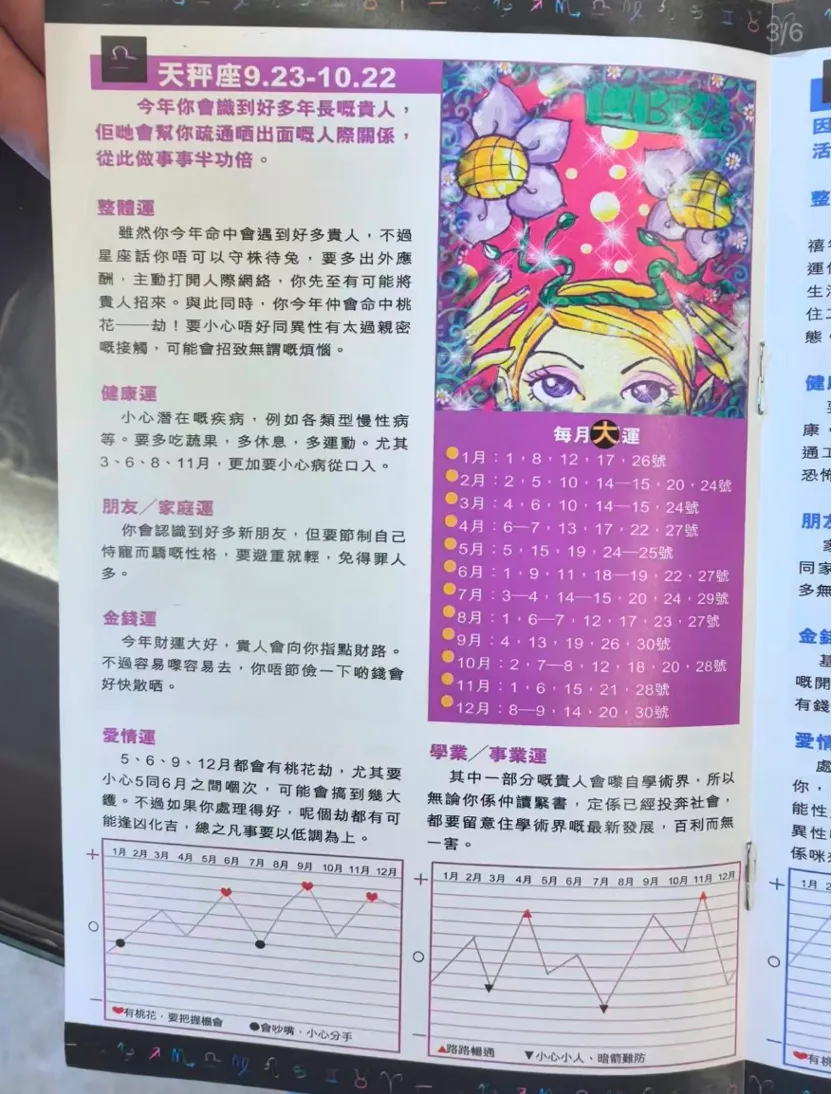 3/6
天秤座9.23-10.22
今年你會識到好多年長嘅貴人，
佢哋會幫你疏通晒出面嘅人際關係，
從此做事事半功倍。
整體運
雖然你今年命中會遇到好多貴人，不過
星座話你唔可以守株待兔，要多出外應
酬，主動打開人際網絡，你先至有可能將
貴人招來。與此同時，你今年仲會命中桃
花——劫！要小心唔好同異性有太過親密
嘅接觸，可能會招致無謂嘅煩惱。
健康運
小心潛在嘅疾病，例如各類型慢性病
等。要多吃蔬果，多休息，多運動。尤其
3、6、8、11月，更加要小心病從口入。
朋友／家庭運
你會認識到好多新朋友，但要節制自己
恃寵而驕嘅性格，要避重就輕，免得罪人
多。
金錢運
今年財運大好，貴人會向你指點財路。
不過容易嚟容易去，你唔節儉一下啲錢會
好快散晒。
愛情運
5、6、9、12月都會有桃花劫，尤其要
小心5同6月之間嗰次，可能會搞到幾大
鑊。不過如果你處理得好，呢個劫都有可
能逢凶化吉，總之凡事要以低調為上。
1月 2月 3月 4月 5月 6月 7月 8月 9月 10月 11月 12月
＋
○
－
有桃花，要把握機會
會吵嘴，小心分手
LIBRA
每月大運
1月：1，8，12，17，26號
2月：2，5，10，14—15，20，24號
3月：4，6，10，14—15，24號
4月：6—7，13，17，22，27號
5月：5，15，19，24—25號
6月：1，9，11，18—19，22，27號
7月：3—4，14—15，20，24，29號
8月：1，6—7，12，17，23，27號
9月：4，13，19，26，30號
10月：2，7—8，12，18，20，28號
11月：1，6，15，21，28號
12月：8—9，14，20，30號
學業／事業運
其中一部分嘅貴人會嚟自學術界，所以
無論你係仲讀緊書，定係已經投奔社會，
都要留意住學術界嘅最新發展，百利而無
一害。
1月 2月 3月 4月 5月 6月 7月 8月 9月 10月 11月 12月
＋
○
－
路路暢通
小心小人、暗箭難防
因
活
整
禧
運
生
住
態
健
康，
通
恐
朋
同家
多無
金
嘅開
有錢
愛情
處
你，
能性
異性
係咪
＋
1月
○
－
有